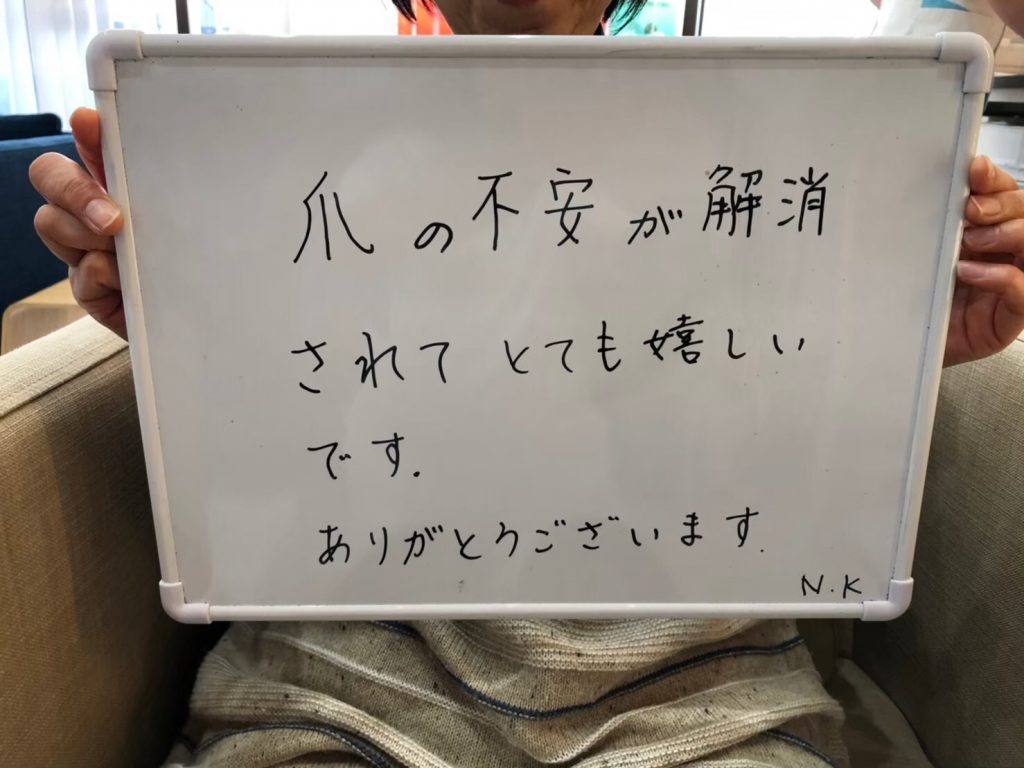 爪の不安が解消
されてとても嬉しい
です.
ありがとうございます.
N.K